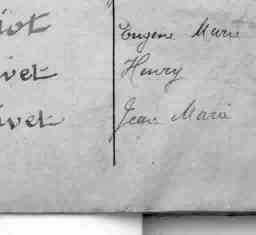 iot Eugene Marie
ivet Henry
ivet Jean Marie